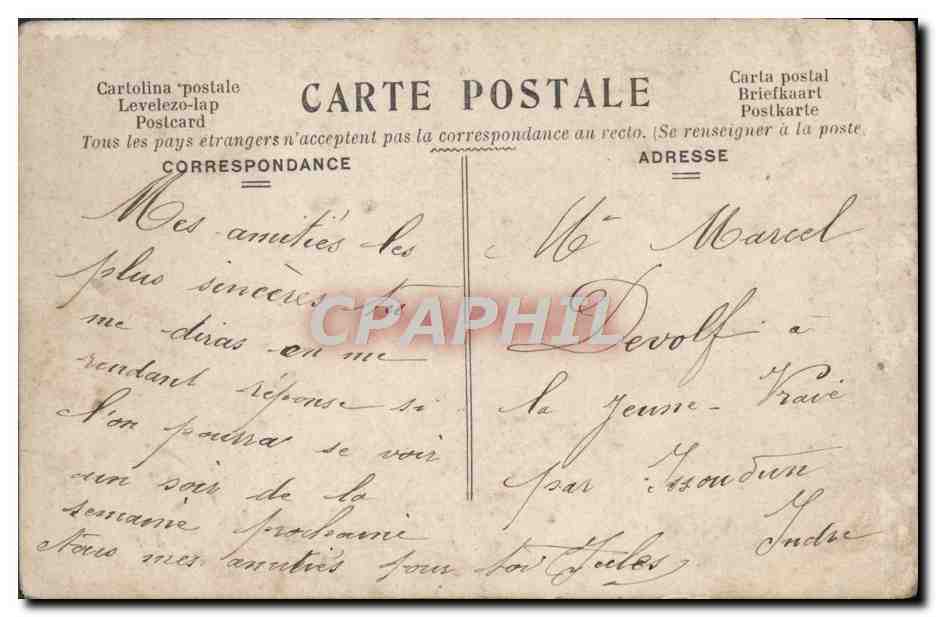 Cartolina postale
Levelezo-lap
Postcard
CARTE POSTALE
Carta postal
Briefkaart
Postkarte
Tous les pays étrangers n'acceptent pas la correspondance au recto. (Se renseigner à la poste,
CORRESPONDANCE
Mes amitiés les
plus sincères tu
me diras en me
rendant réponse si
l'on pourra se voir
un soir de la
semaine prochaine
mes amitiés pour toi Jules
ADRESSE
Marcel
Devolf à
la jeune-
par Issoudun
Indre
CPAPHIL